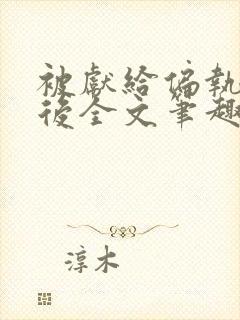 被獻給偏執
後全文筆趣
淳木